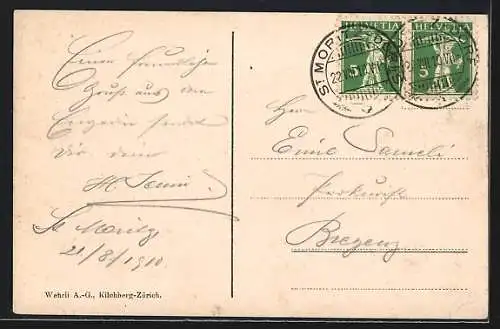 HELVETIA HELVETIA
5 5
ST. MORITZ
22.VIII.10
Einen freundlichen
Gruss aus dem
Engadin sendet
Dir dein
St. Moritz
21/8/1910
Herrn
Emil
Prokurist
Bregenz
Wehrli A.-G., Kilchberg-Zürich.